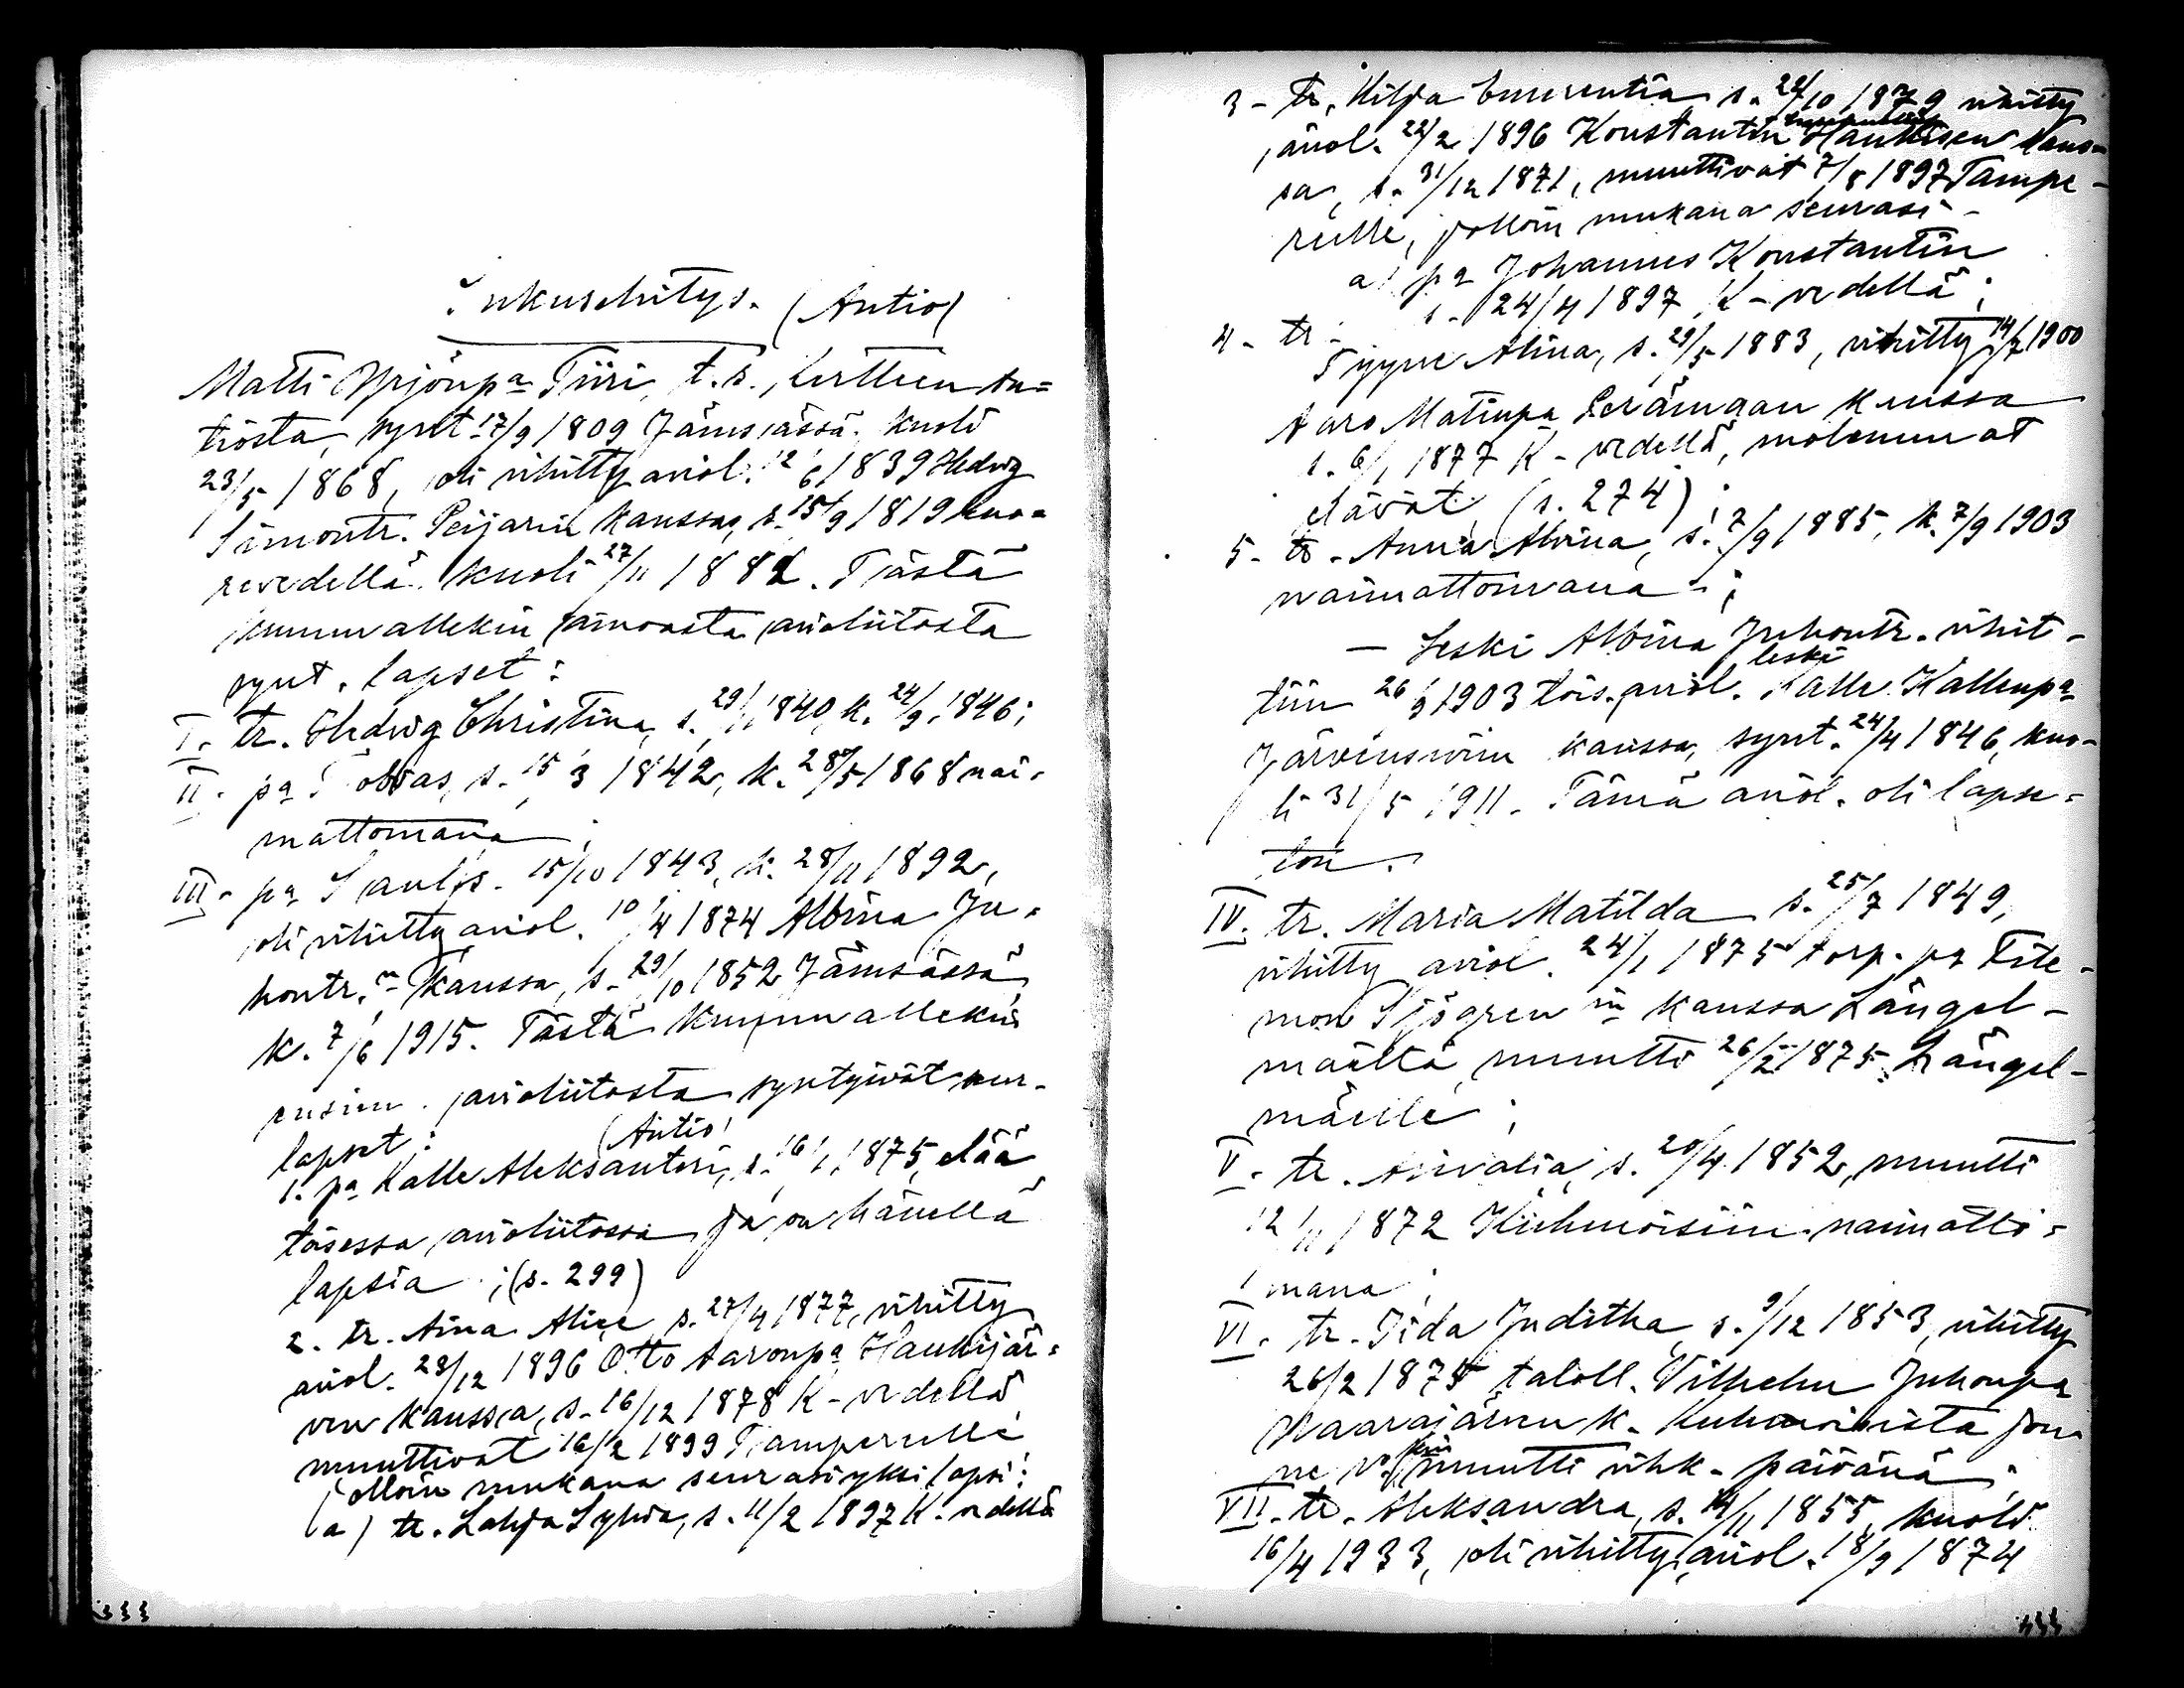 Sukuselvitys. (Antio)
Matti Yrjönpa Tiiri, t.s., Kertteen su=
tiosta, synt. 17/9 1809 Jämsässä. kuoli
23/5 1868, oli vihitty aviol. 12/6 1839 Hedvig
Simontr. Peijarin kanssa, s. 15/9 1819 kuo=
revedellä. kuoli 27/11 1882. Tästä
kummallekin ainoasta avioliitosta
synt. lapset:
I. tr. Hedvig Christina, s. 29/11 1840, k. 24/9 1846;
II. pa Tobias, s. 15/3 1842, k. 28/5 1868 nai-
mattomana;
III. pa Saul, s. 15/10 1843, k. 28/11 1892,
oli vihitty aviol. 10/4 1874 Albina Ju=
hontr. n kanssa, s. 29/10 1852 Jämsässä
k. 7/6 1915. Tästä kummallekin
ensim. avioliitosta syntyivät seur.
lapset:
1. pa Kalle Aleksanteri, (Antio) s. 16/1 1875, elää
toisessa avioliitossa ja on hänellä
lapsia; (s. 299)
2. tr. Aina Alice s. 27/4 1877, vihitty
aviol. 28/12 1896 Otto Aaronpa Haukijär=
ven kanssa, s. 16/12 1878 K-vedellä
muuttivat 16/2 1899 Tampereelle
jolloin mukana seurasi yksi lapsi:
a) tr. Lahja Sylvia, s. 11/2 1897 K-vedellä
333
3- tr. Hilja Emerentia s. 24/10 1879 vihitty
aviol. 22/2 1896 Konstantin Haukisen kans=
sa, s. 31/12 1871, muuttivat 7/8 1897 Tampe-
reelle, jolloin mukana seurasi -
a) pa Johannes Konstantin
s. 24/4 1897 K-vedellä;
4- tr.
Tyyne Alina, s. 29/5 1883, vihitty 14/7 1900
Aaro Matinpa Serängan kanssa
s. 6/1 1877 K-vedellä, molemmat
elävät (s. 274);
5- tr. Anna Alvina, s. 7/9 1885, k. 7/9 1903
naimattomana;
- Leski Albina Juhontr. vihit-
tiin 26/9 1903 tois. aviol. leski Kalle Kallenpa
Järvensivun kanssa, synt. 24/4 1846, kuo-
li 31/5 1911. Tämä aviol. oli lapse=
ton.
IV. tr. Maria Matilda s. 25/7 1849,
vihitty aviol. 24/1 1875 torp. pa File-
mon Sjögren in kanssa Längel-
mäeltä, muutti 26/2 1875 Längel-
mäelle;
V. tr. s. 20/4 1852, muutti
12/11 1872 Kuhmoisiin naimatto=
mana;
VI. tr. Iida Juditha s. 9/12 1853, vihitty
26/2 1875 taloll. Vilhelm Juhonpa
Waarajärven k. Kuhmoisista jon-
ne muutti vihk. päivänä;
VII. tr. Aleksandra, s. 14/11 1855, kuoli
16/4 1933, oli vihitty aviol. 18/9 1874
333